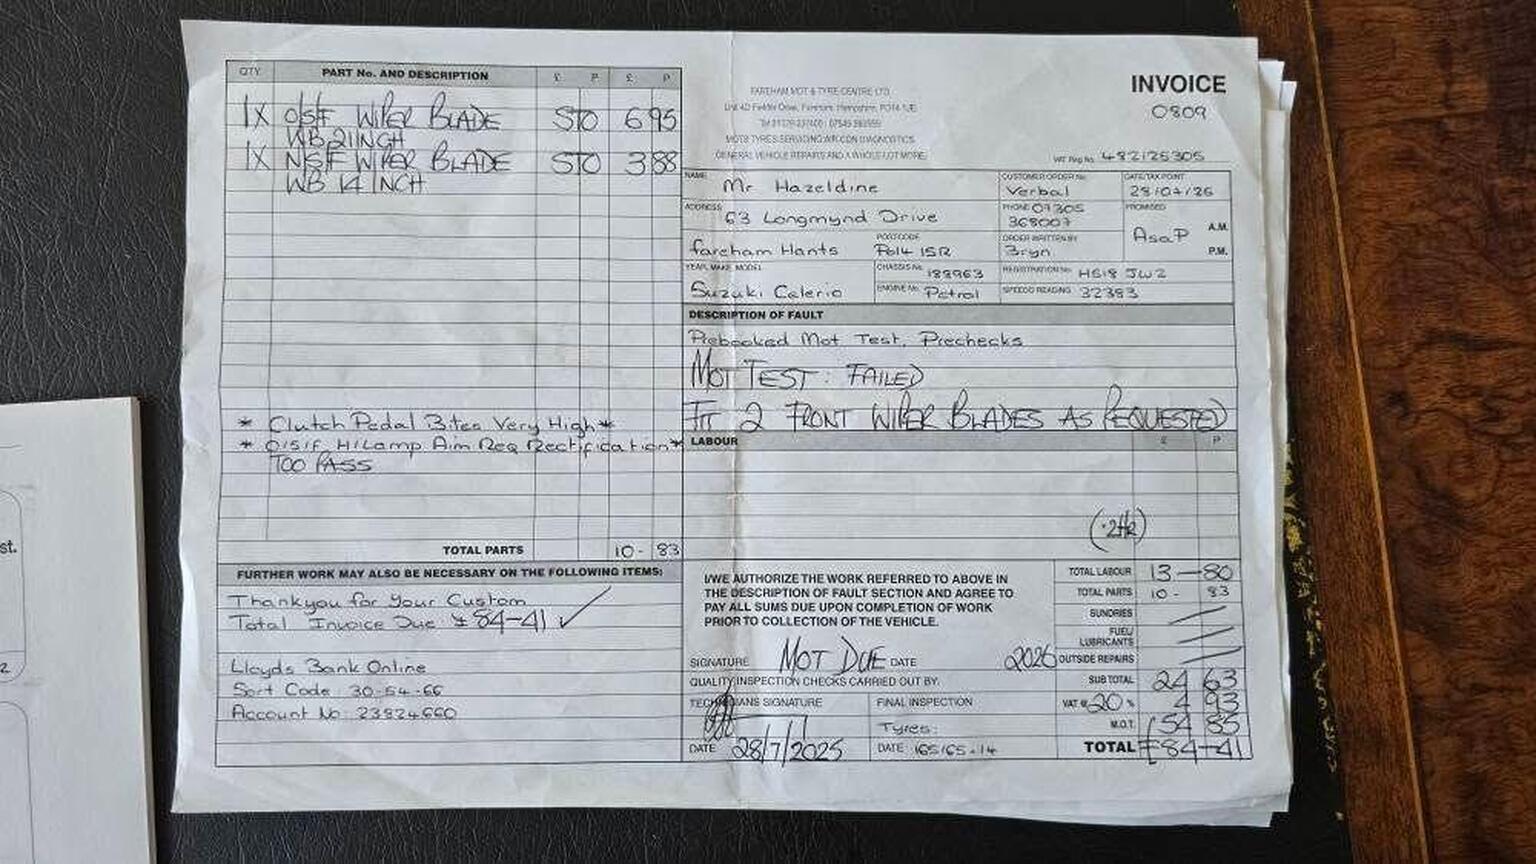 QTY. PART No. AND DESCRIPTION £ P £ P
1X O/S/F WIPER BLADE STO 6 95
WB 21 INCH
1X N/S/F WIPER BLADE STO 3 88
WB 14 INCH
* Clutch Pedal Bites Very High *
* O/S/F H/Lamp Aim Req Rectification *
TOO PASS
TOTAL PARTS 10 - 83
FURTHER WORK MAY ALSO BE NECESSARY ON THE FOLLOWING ITEMS:
Thankyou for Your Custom
Total Invoice Due £ 84-41 ✓
Lloyds Bank Online
Sort Code: 30-54-66
Account No: 23824660
INVOICE
0809
FAREHAM MOT & TYRE CENTRE LTD
Unit 4D Fielder Drive, Fareham, Hampshire, PO14 1JE
MOTS TYRES SERVICING AIR CON DIAGNOSTICS
GENERAL VEHICLE REPAIRS AND A WHOLE LOT MORE
VAT Reg No. 482125305
NAME Mr Hazeldine CUSTOMER ORDER No. Verbal DATE/TAX POINT
ADDRESS 63 Longmynd Drive PHONE 07305 368007 PROMISED Asap A.M. P.M.
Fareham Hants POSTCODE Po14 1SR ORDER WRITTEN BY Bryn
YEAR, MAKE, MODEL Suzuki Celerio CHASSIS No. 188963 REGISTRATION No. HS18 JWZ
ENGINE No. Petrol SPEEDO READING 32383
DESCRIPTION OF FAULT
Prebooked Mot Test, Prechecks
MOT TEST: FAILED
FIT 2 FRONT WIPER BLADES AS REQUESTED
LABOUR £ P
(.2HR)
I/WE AUTHORIZE THE WORK REFERRED TO ABOVE IN
THE DESCRIPTION OF FAULT SECTION AND AGREE TO
PAY ALL SUMS DUE UPON COMPLETION OF WORK
PRIOR TO COLLECTION OF THE VEHICLE.
SIGNATURE MOT DUE DATE 2026
QUALITY INSPECTION CHECKS CARRIED OUT BY.
TECHNICIANS SIGNATURE FINAL INSPECTION
Tyres:
DATE 28/7/2025 DATE 165/65-14
TOTAL LABOUR 13-80
TOTAL PARTS 10 - 83
SUNDRIES
FUEL/
LUBRICANTS
OUTSIDE REPAIRS
SUB TOTAL 24 63
VAT @ 20 % 4 93
M.O.T. 54 85
TOTAL £84-41
st.
2